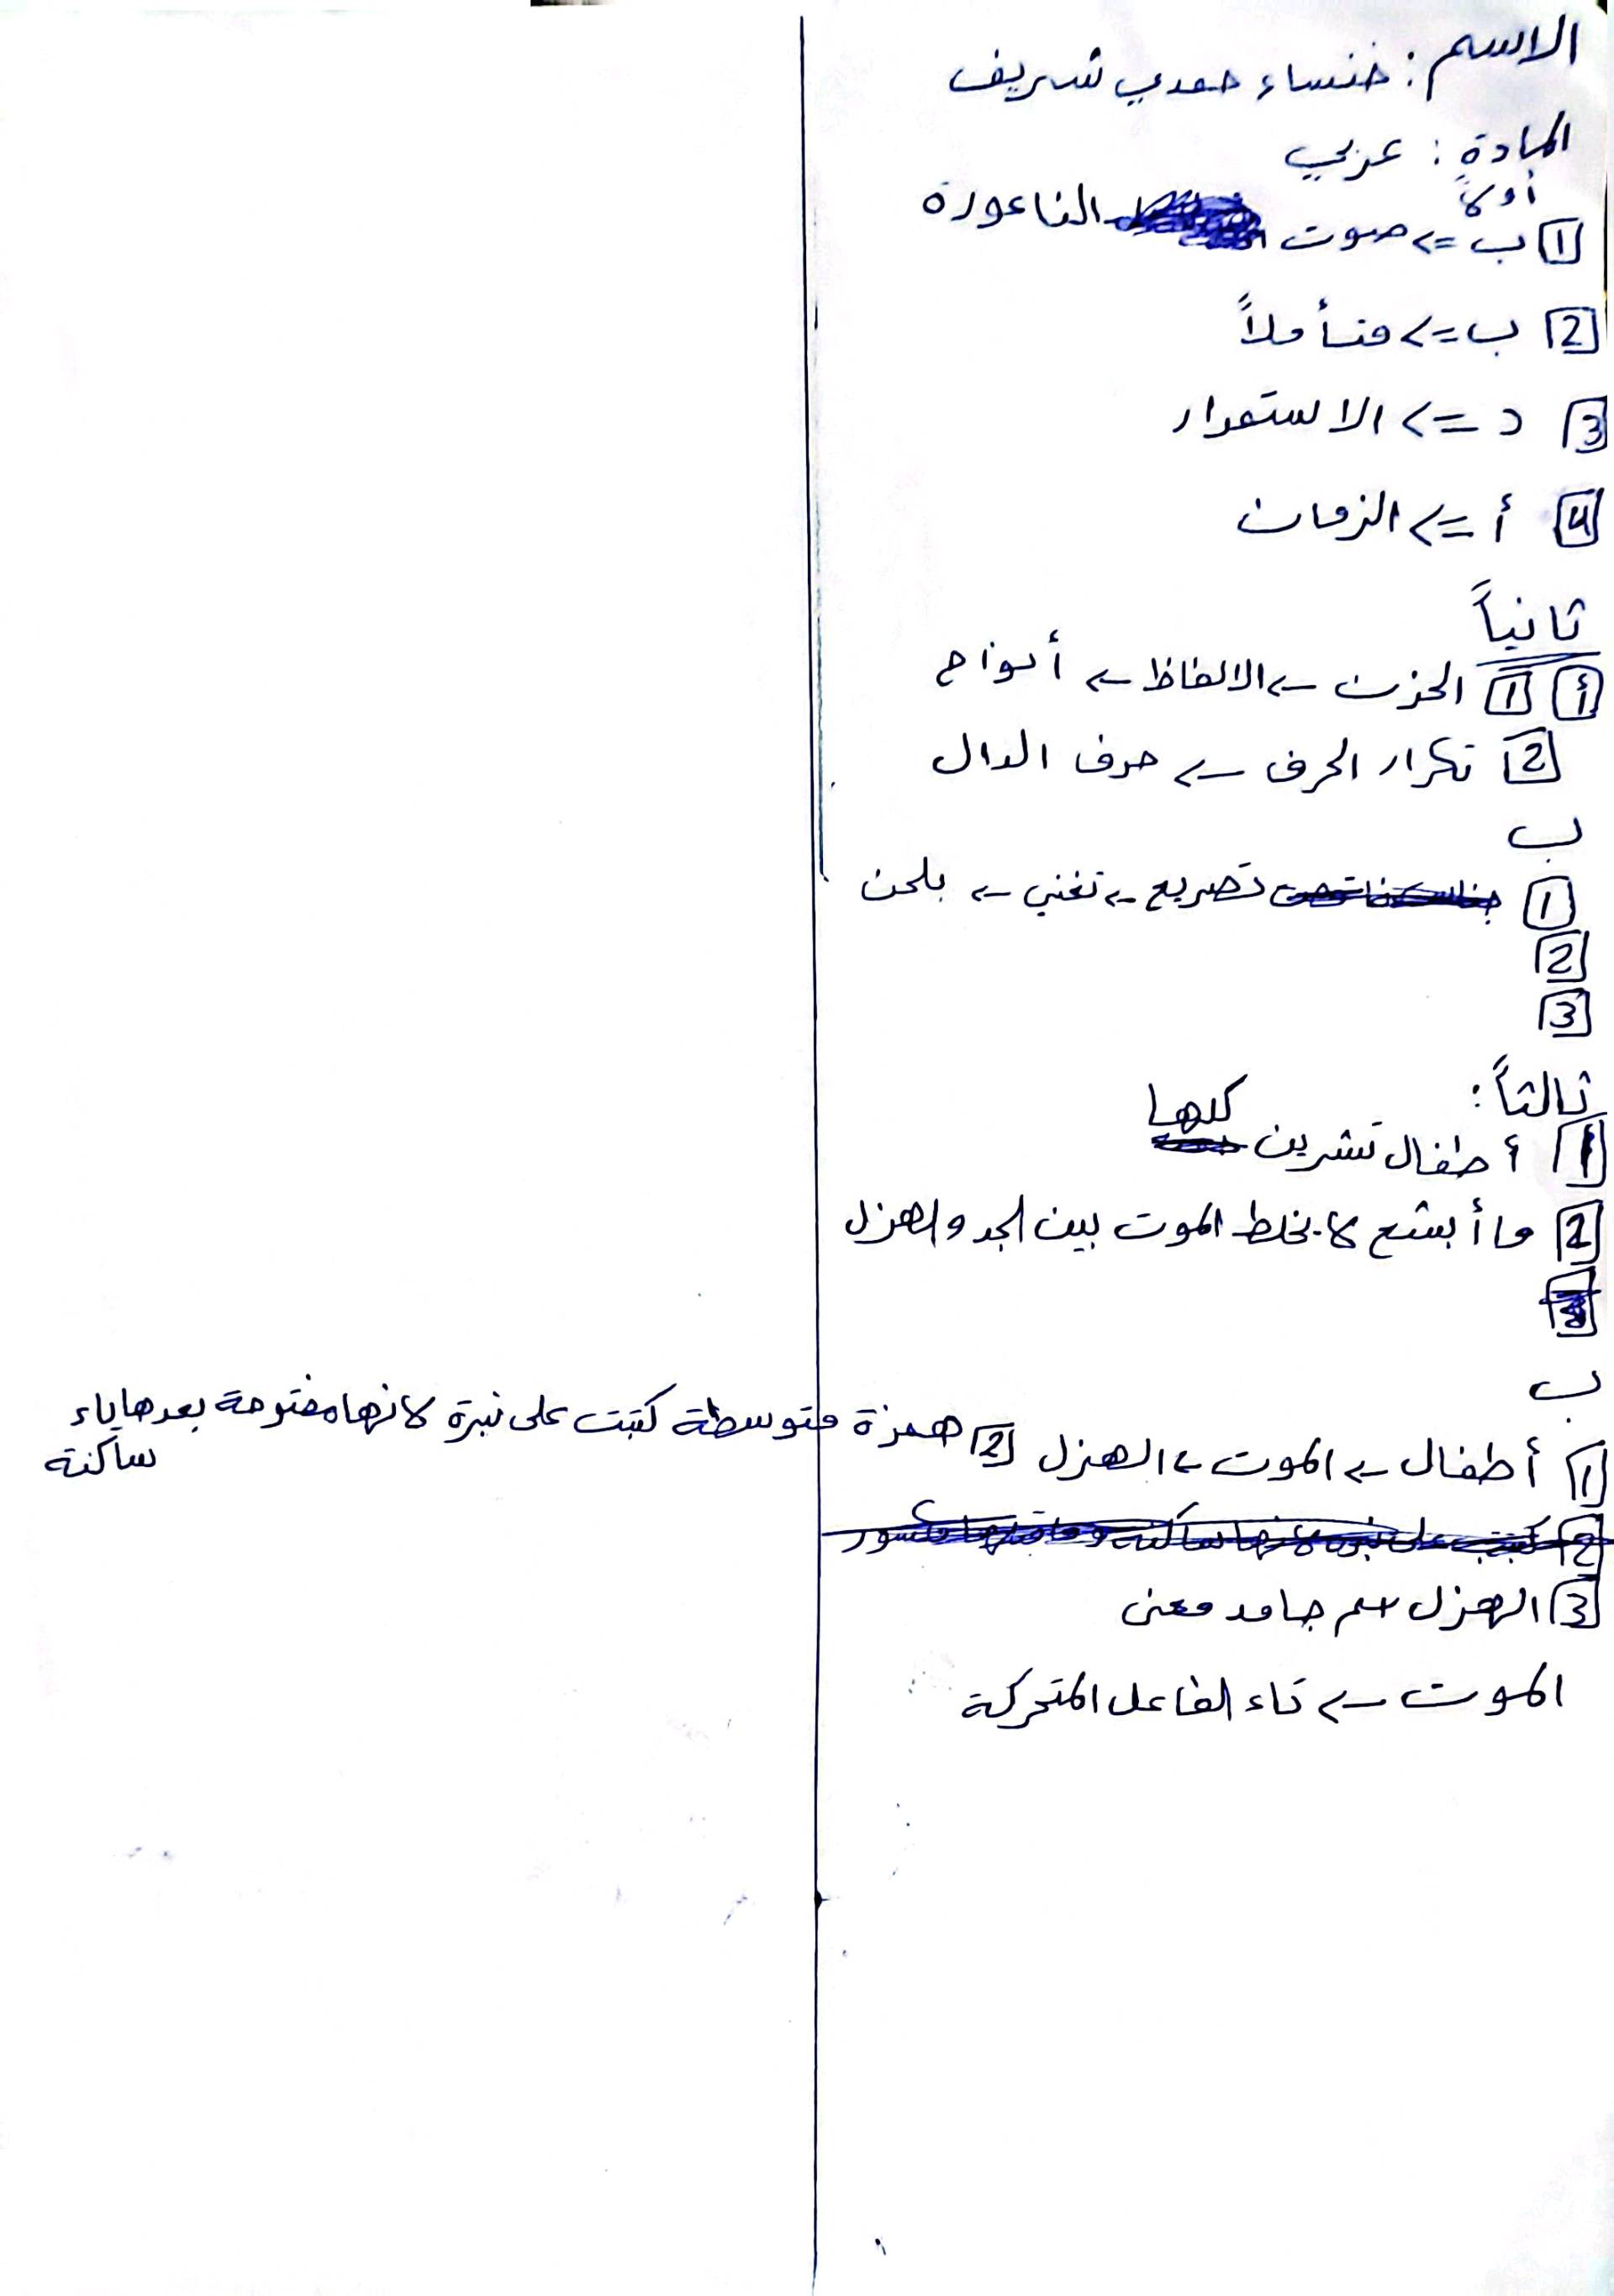 الاسم : خنساء حمدي شريف
المادة : عربي
أولاً
1 ب => صوت الناعورة
2 ب => متأملاً
3 د => الاستمرار
4 أ => الزمان
ثانياً
أ 1 الحزن -> الالفاظ -> أنواح
2 تكرار الحرف -> حرف الدال
ب
1 تصريع -> تغني -> بلحن
2
3
ثالثاً :
1 أطفال تشرين كلها
2 ما أبشع لا يخلط الموت بين الجد والهزل
ب
1 أطفال -> الموت -> الهزل
2 همزة متوسطة كتبت على نبرة لانها مفتوحة بعدها ياء ساكنة
3 الهزل اسم جامد معنى
الموت -> تاء الفاعل المتحركة